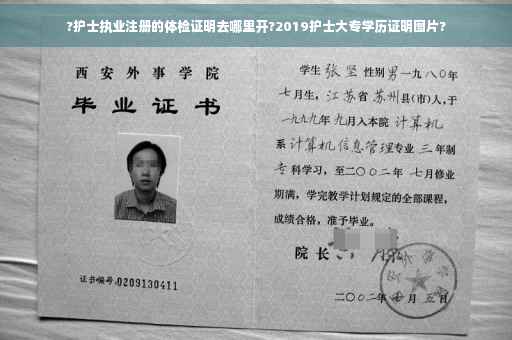 ?护士执业注册的体检证明去哪里开?2019护士大专学历证明图片?
西安外事学院
毕业证书
证书编号:0209130411
学生 张坚 性别 男 一九八〇年
七月生，江苏省 苏州 县(市)人,于
一九九九年 九月入本院 计算机
系 计算机信息管理专业 三 年制
专 科学习，至二〇〇二年 七月修业
期满，学完教学计划规定的全部课程，
成绩合格，准予毕业。
院长
二〇〇二年 月 五日